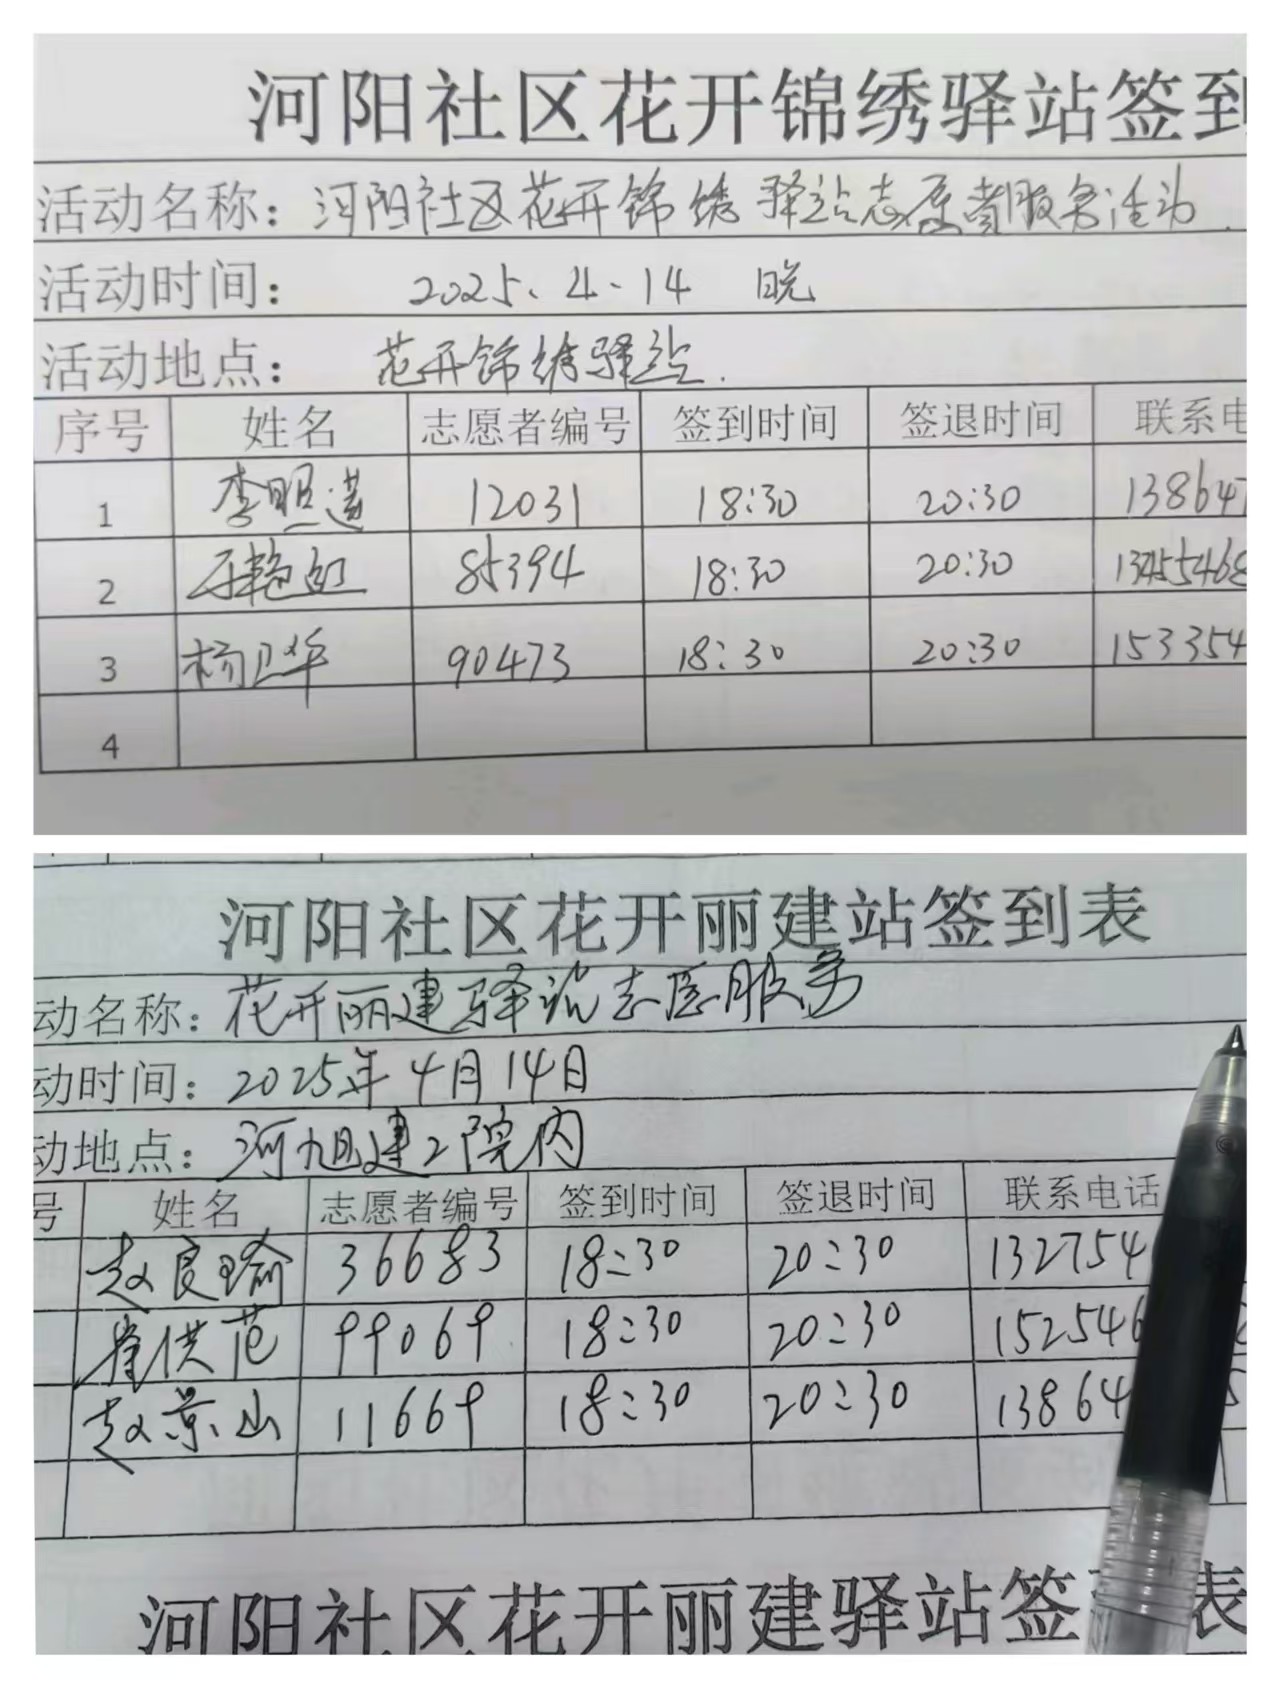 河阳社区花开锦绣驿站签到
活动名称：河阳社区花开锦绣驿站志愿者服务活动.
活动时间： 2025、4、14 晚
活动地点： 花开锦绣驿站.
序号 姓名 志愿者编号 签到时间 签退时间 联系电
1 李照莲 12031 18:30 20:30 138647
2 艳红 85394 18:30 20:30 13455468
3 杨卫华 90473 18:30 20:30 153354
4
河阳社区花开丽建站签到表
动名称：花开丽建驿站志愿服务
动时间：2025年4月14日
动地点：河旭建工院内
号 姓名 志愿者编号 签到时间 签退时间 联系电话
赵良瑜 36683 18:30 20:30 132754
崔供范 99069 18:30 20:30 152546
赵景山 11669 18:30 20:30 13864
河阳社区花开丽建驿站签 表